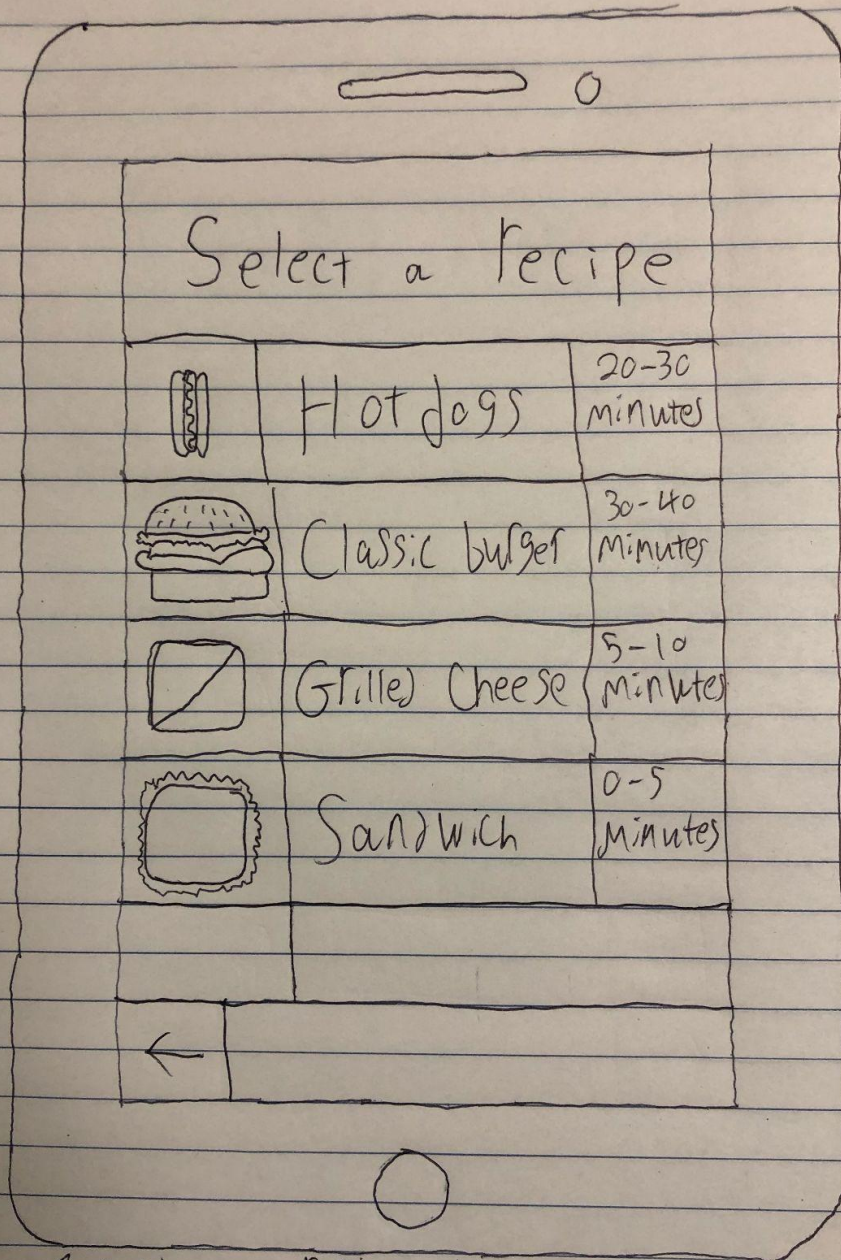 Select a recipe
Hot dogs
20-30
minutes
Classic burger
30-40
Minutes
Grilled Cheese
5-10
Minutes
Sandwich
0-5
Minutes